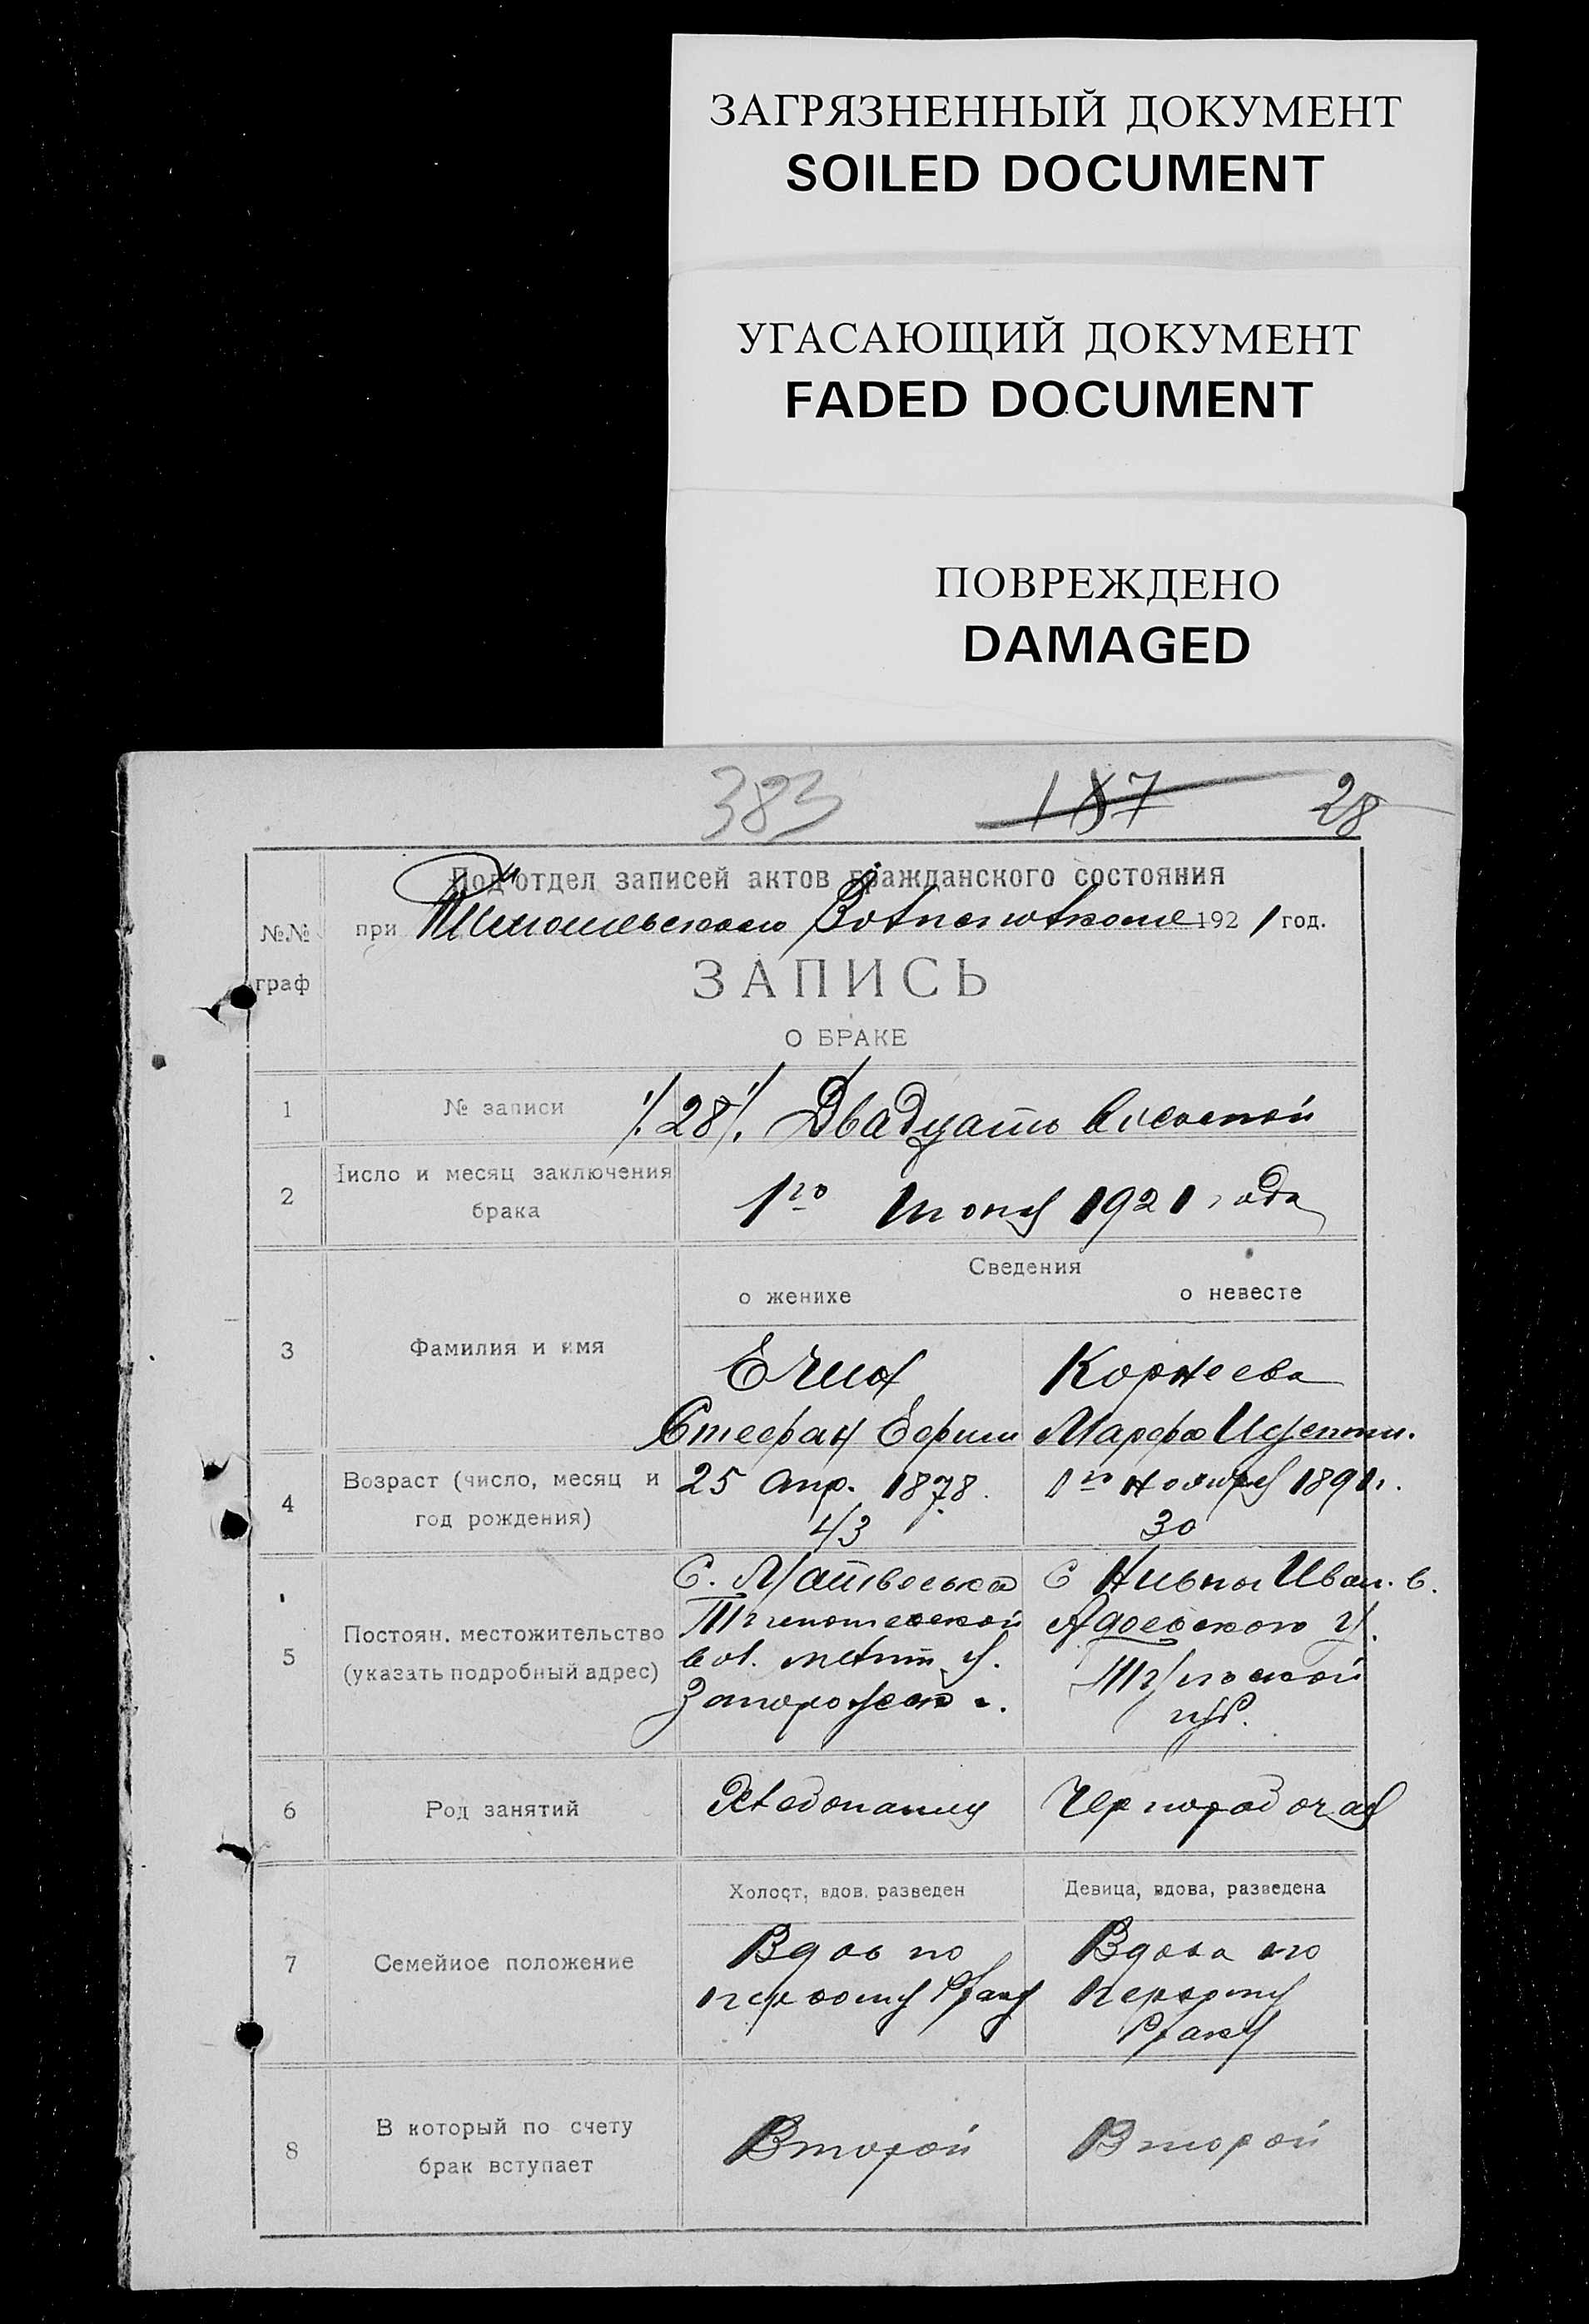 ЗАГРЯЗНЕННЫЙ ДОКУМЕНТ
SOILED DOCUMENT
УГАСАЮЩИЙ ДОКУМЕНТ
FADED DOCUMENT
ПОВРЕЖДЕНО
DAMAGED
383 187 28
Под'отдел записей актов гражданского состояния
№№ при 1921 год.
граф
ЗАПИСЬ
О БРАКЕ
1 № записи ./28/. Двадцать восьмой
2 Число и месяц заключения
брака
1го Июня 1921 года
Сведения
о женихе о невесте
3 Фамилия и имя
Корнеева
Стефан Ефим Марфа
4 Возраст (число, месяц и
год рождения)
25 Апр. 1878. 1го Ноября 1891г.
43 30
5 Постоян. местожительство
(указать подробный адрес)
С. Матвеевка С Иван. в.
вол. у.
Тульской
губ.
6 Род занятий
Хлебопашец Чернорабочая
Холост, вдов, разведен Девица, вдова, разведена
7 Семейное положение
Вдов по Вдова по
первому браку первому
браку
8 В который по счету
брак вступает
Второй Второй